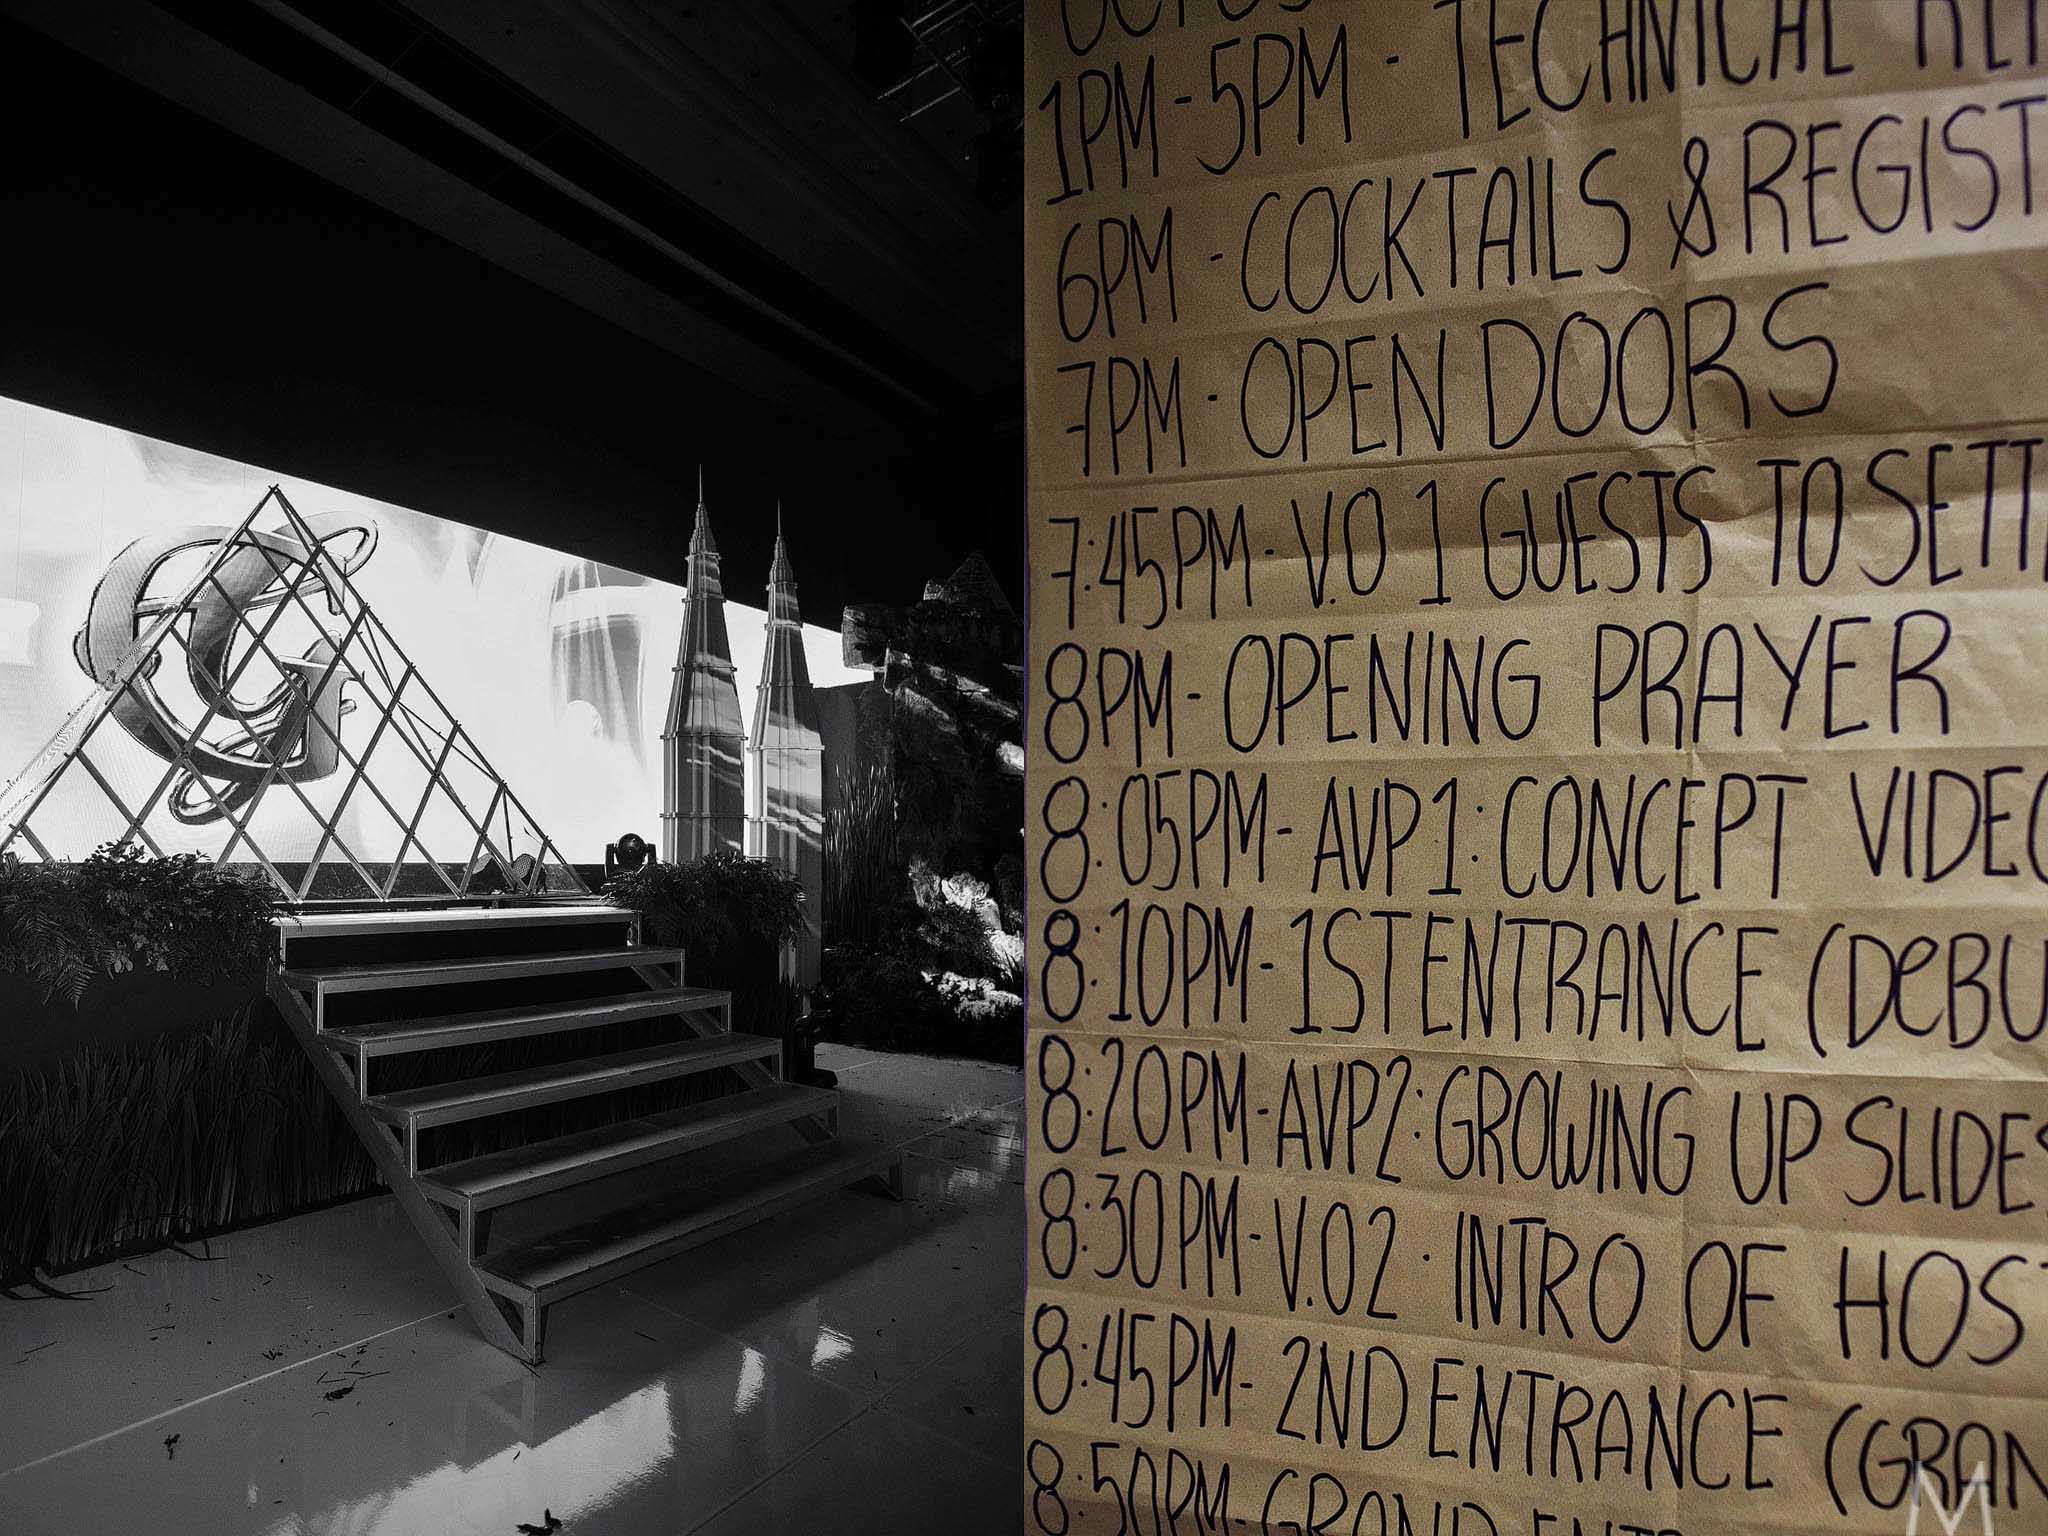 G
1PM - 5PM - TECHNICAL
6PM - COCKTAILS & REGIST
7PM - OPEN DOORS
7:45PM - V.O 1 GUESTS TO SETT
8PM - OPENING PRAYER
8:05PM - AVP 1: CONCEPT VIDEO
8:10PM - 1ST ENTRANCE (DeBU
8:20PM - AVP2: GROWING UP SLIDES
8:30PM - V.O 2 - INTRO OF HOST
8:45PM - 2ND ENTRANCE (GRAN
8:50PM - GRAND ENT
M